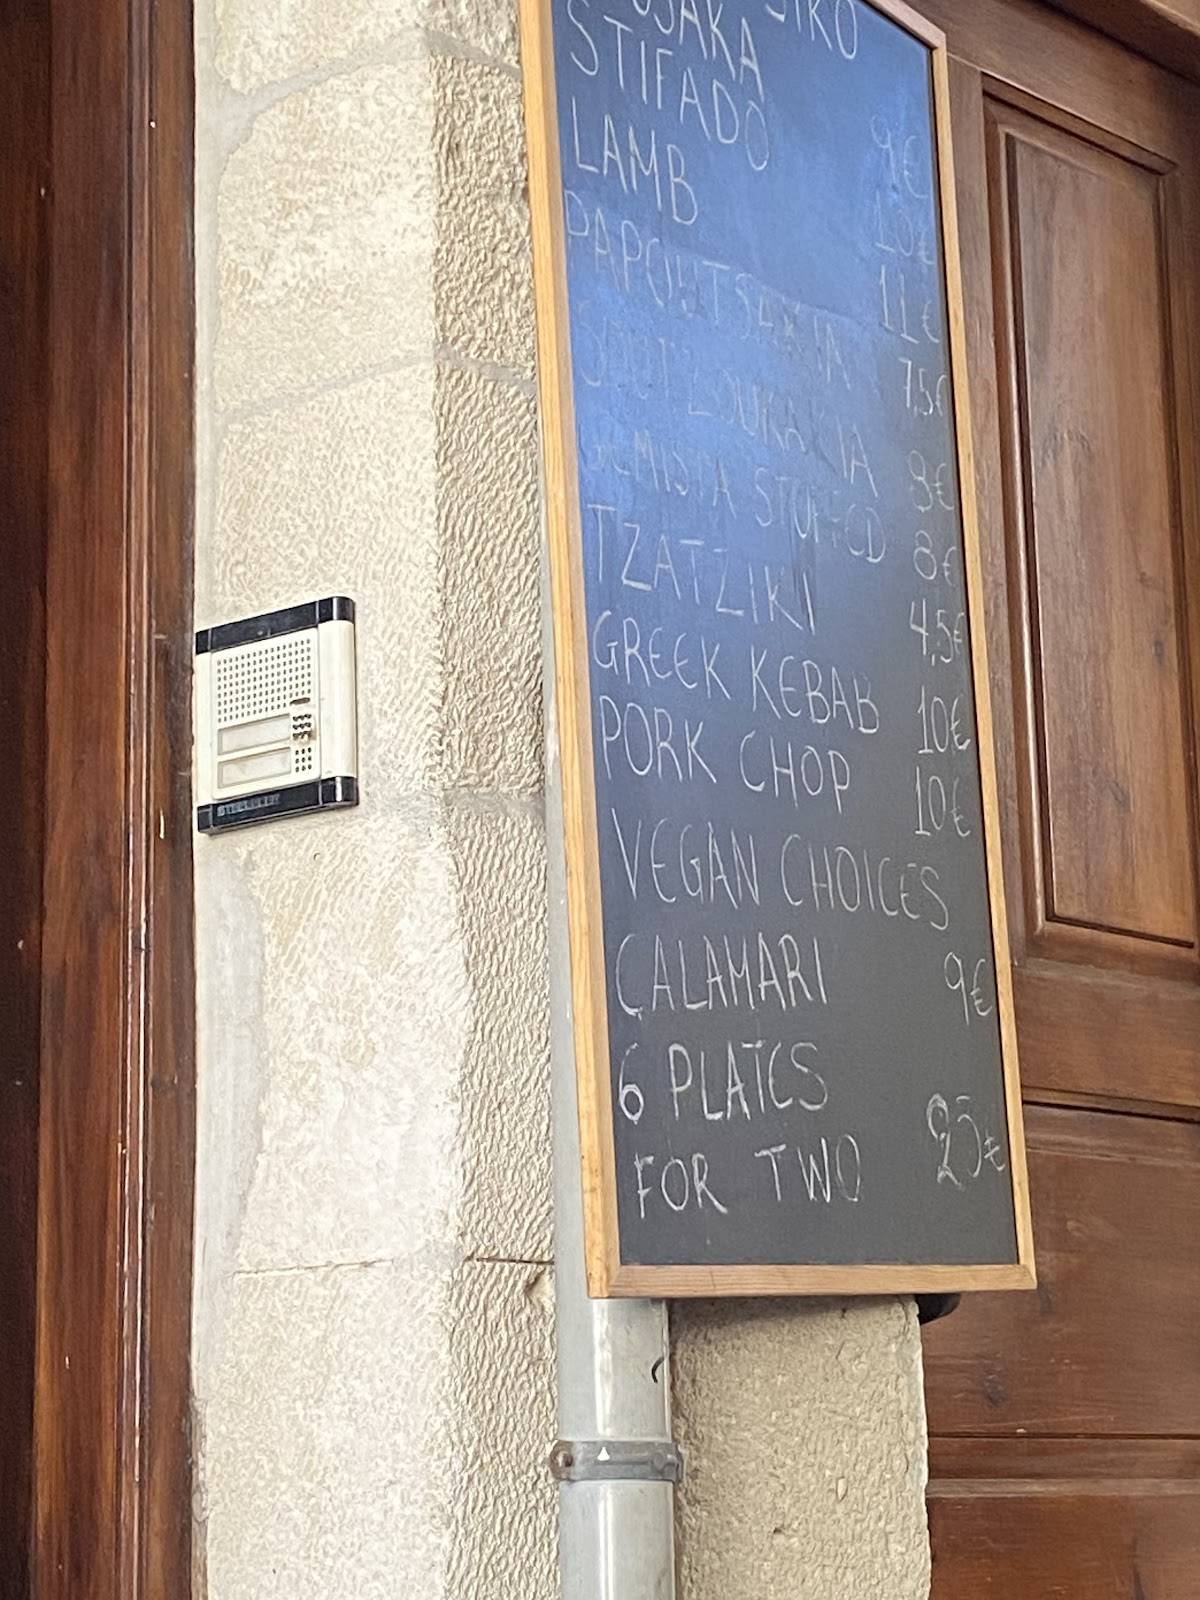 SIKO
STIFADO 9€
LAMB 10€
11€
PAPOUTSAKIA 7,5€
SOUTZOUKAKIA 8€
GEMISTA STUFFED 8€
TZATZIKI 4,5€
GREEK KEBAB 10€
PORK CHOP 10€
VEGAN CHOICES
CALAMARI 9€
6 PLATES
FOR TWO 25€